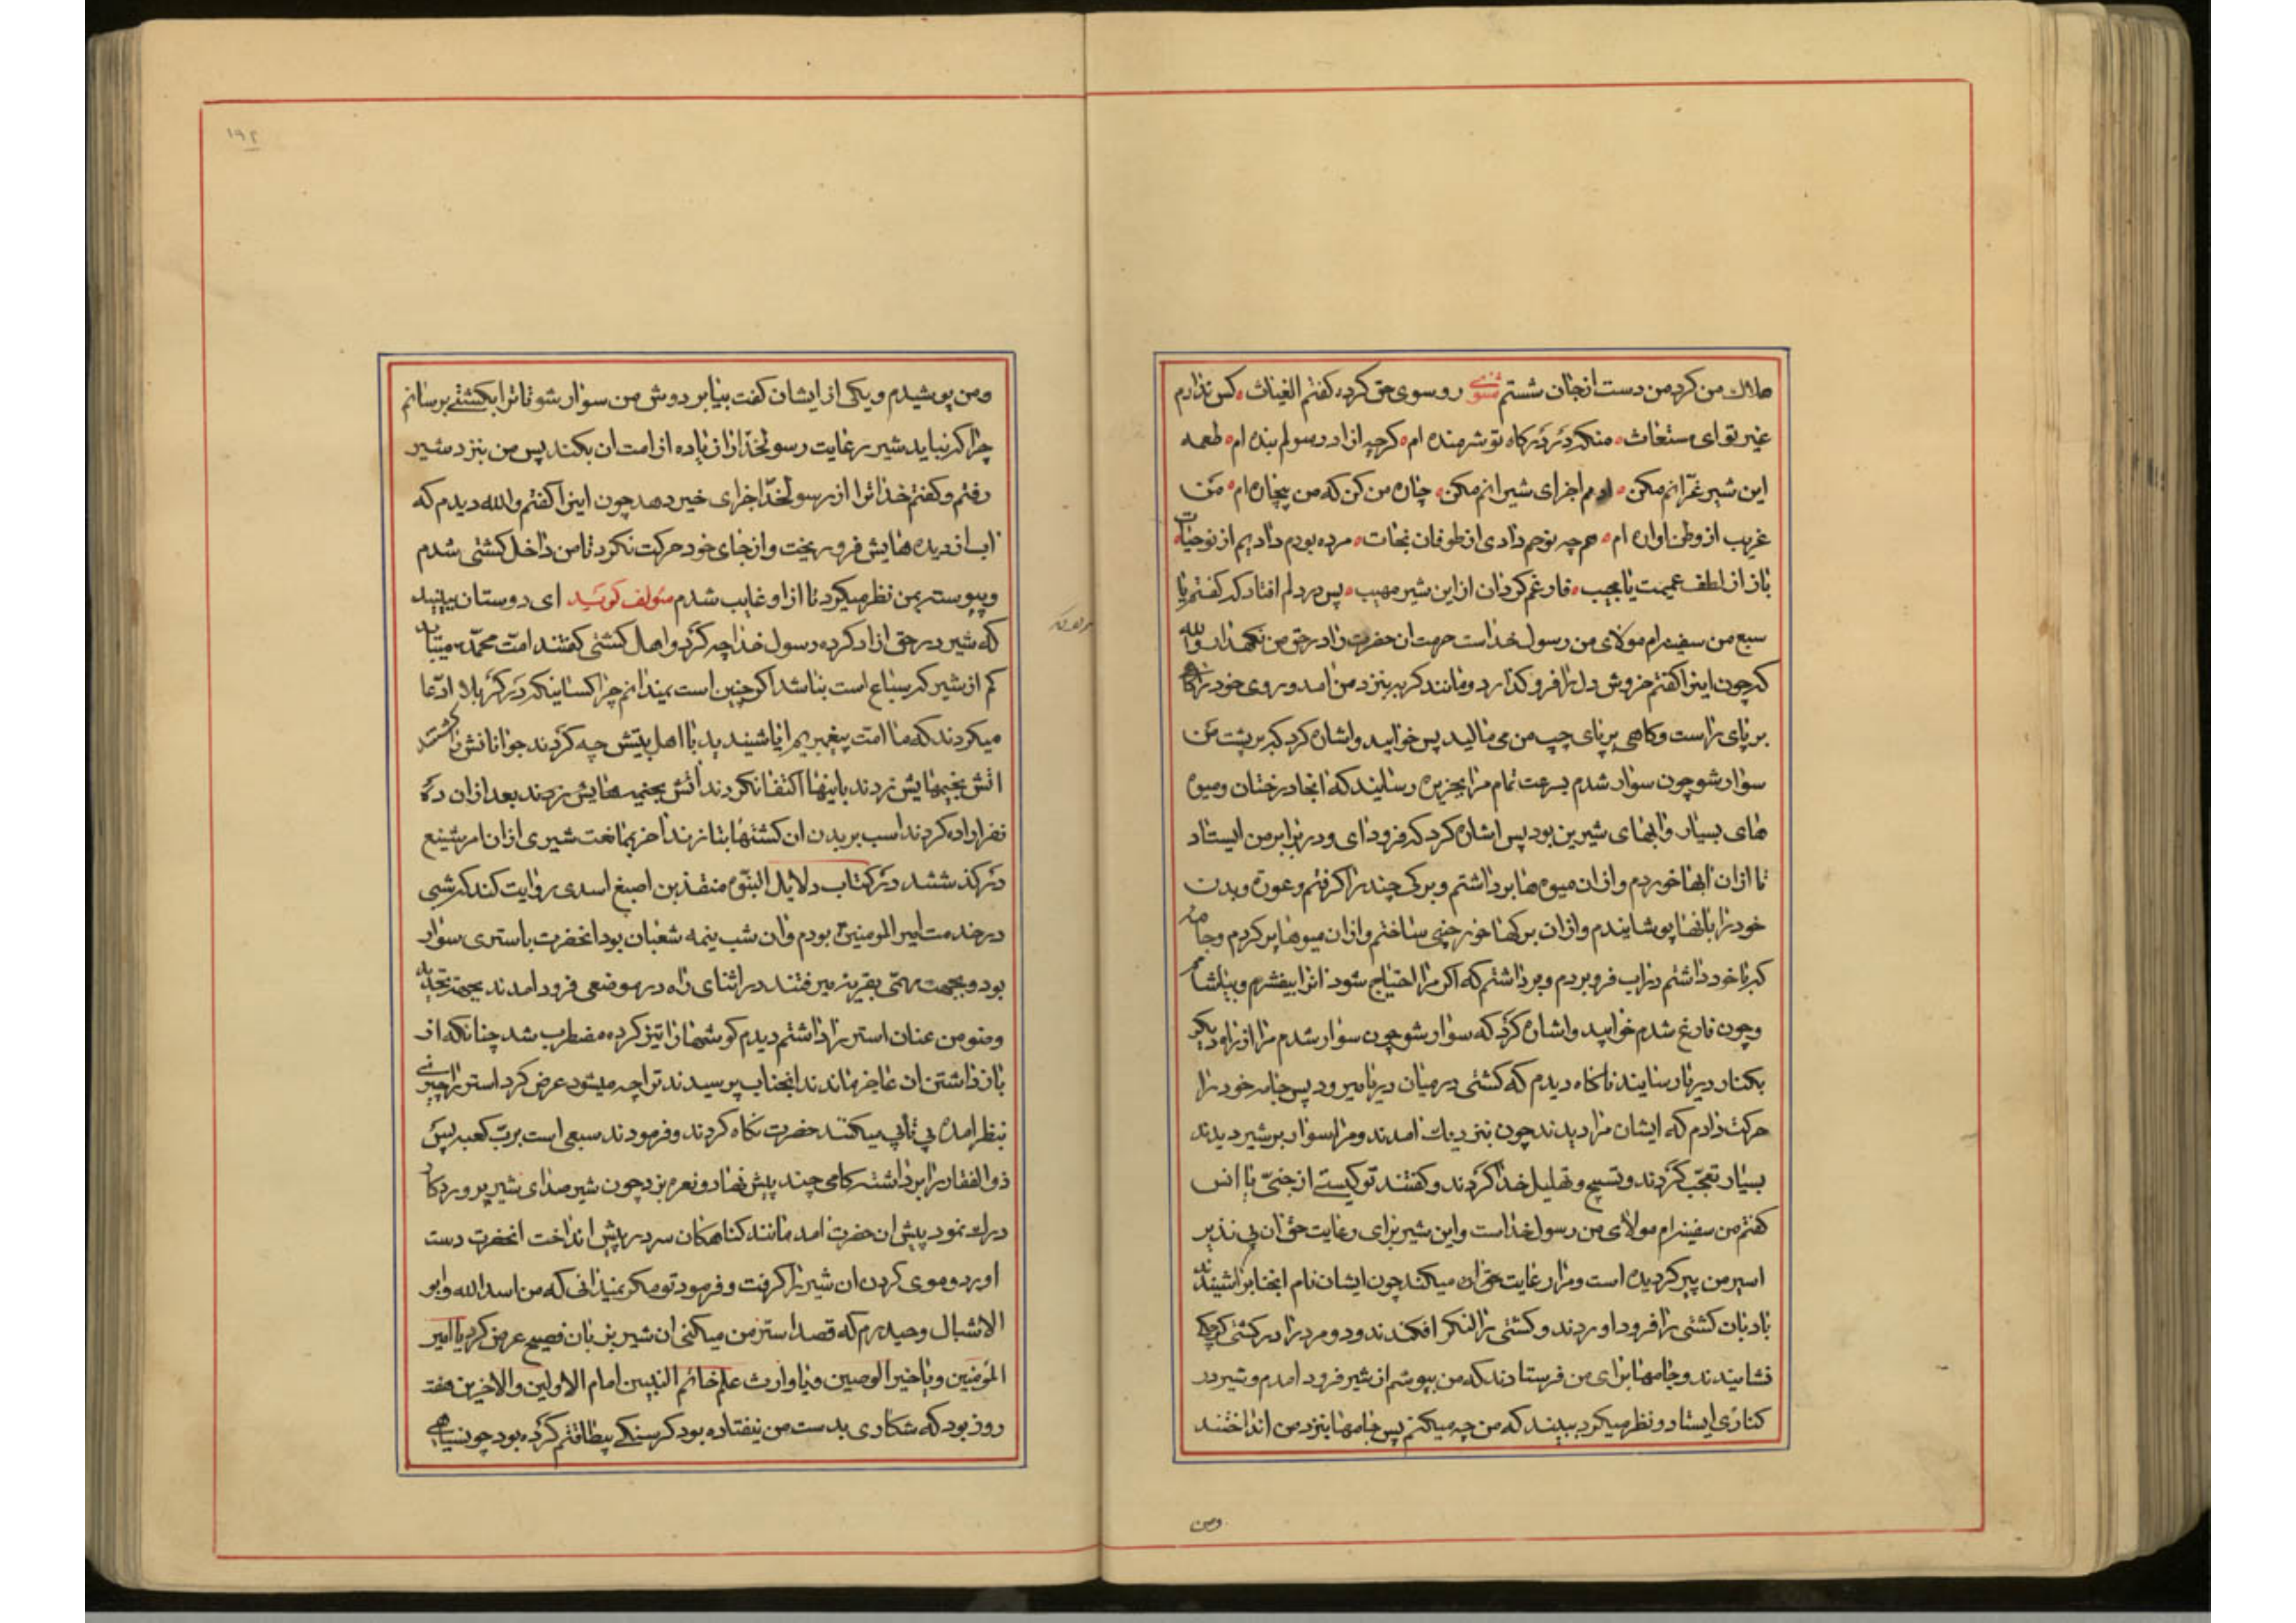 هلاک من کرد من دست از جان شستم مثنوی رو سوی حق کرده گفتم الغیاث کس ندارم
غیر تو ای مستغاث منکه در درگاه تو شرمنده ام گرچه ازاد رسولم بنده ام طعمه
این شیر غرّانم مکن اجرای شیرانم مکن چاره من کن که من بیچاره ام من
غریب از وطن اواره ام هم چه نوحم دادی از طوفان نجات مرده بودم دادیم از نو حیات
باز از لطف عمیمت یا مجیب فارغم گردان از این شیر مهیب پس در دلم افتاد که گفتم یا
سبع من سفینه ام مولای من رسول خداست حرمت ان حضرت را در حق من نگهدار والله
که چون اینرا گفتم خروش دل را فرو گذارد و مانند گربه بنزد من امد و روی خود را گاه
بر پای راست و گاهی بر پای چپ من می مالید پس خوابید و اشاره کرد که بر پشت من
سوار شو چون سوار شدم بسرعت تمام مرا بجزیره رسانید که انجا درختان و میوه
های بسیار و ابهای شیرین بود پس اشاره کرد که فرود ای و در برابر من ایستاد
تا از ان ابها خوردم و از ان میوه ها برداشتم و برکی چند را گرفتم و عورة و بدن
خود را بانها پوشانیدم و از ان برکها خورجینی ساختم و از ان میوها پر کردم و جامه
که با خود داشتم در اب فرو بردم و برداشتم که اگر مرا احتیاج شود انرا بیفشرم و بیاشامم
و چون فارغ شدم خوابید و اشاره کرد که سوار شو چون سوار شدم مرا از راه دیگر
بکنار دریا رسانیند ناگاه دیدم که کشتی در میان دریا میرود پس جامه خود را
حرکت دادم که ایشان مرا دیدند چون بنزدیک امدند و مرا سوار بر شیر دیدند
بسیار تعجّب کردند و تسبیح و تهلیل خدا کردند و گفتند تو کیستی از جنّی یا انس
گفتم من سفینه ام مولای من رسول خداست و این شیر برای رعایت حق ان بی نذیر
اسیر من پیر کردیده است و مرا رعایت میکند چون ایشان نام انجناب را شنیدند
بادبان کشتی را فرود اوردند و کشتی را لنکر افکندند و دو مرد را در کشتی کوچکی
نشانیدند و جامها برای من فرستادند که من بپوشم از شیر فرود امدم و شیر در
کناری ایستاد و نظر میکرد ببیند که من چه میکنم پس جامها بنزد من انداختند
ومن
۱۹۲
ومن پوشیدم و یکی از ایشان گفت بیا بر دوش من سوار شو تا ترا بکشتی برسانم
چرا که نباید شیر رعایت رسولخدا را زیاده از امت ان بکند پس من بنزد شیر
رفتم و گفتم خدا ترا از رسولخدا جزای خیر دهد چون اینرا گفتم والله دیدم که
اب از دیده هایش فرو ریخت و از جای خود حرکت نکرد تا من داخل کشتی شدم
و پیوسته بمن نظر میکرد تا از او غایب شدم مؤلف گوید ای دوستان ببینید
که شیر در حق ازاد کرده رسول خدا چه کرد و اهل کشتی گفتند امت محمّد میباید
کم از شیر که سباع است نباشد اگر چنین است نمیدانم چرا کسانیکه در کربلا ادّعا
میکردند که ما امت پیغمبریم ایا شنیدید با اهل بیتش چه کردند جوانانش را کشتند
اتش بخیمهایش زدند باینها اکتفا نکردند اتش بخیمه هایش زدند بعد از ان ده
نفر اراده کردند اسب بر بدن ان کشتها بتازند اخر بممانعت شیری از ان امر شنیع
درگذشتند در کتاب دلایل النبوّه منقذ بن اصبغ اسدی روایت کند که شبی
در خدمت امیرالمومنین بودم و ان شب نیمه شعبان بود انحضرت باستری سوار
بود و بجهت مهمّی بقریه میرفتند در اثنای راه در موضعی فرود امدند بجهته تجدید
وضو من عنان استر را داشتم دیدم گوشها را تیز کرده مضطرب شد چنانکه از
باز داشتن ان عاجز ماندند انجناب پرسیدند ترا چه میشود عرض کرد استر را چیزی
بنظر امده بی تابی میکند حضرت نگاه کردند و فرمودند سبعی است برب کعبه پس
ذوالفقار را برداشته گامی چند پیش نهاد و نعره بزد چون شیر صدای شیر پروردگار
درک نمود پیش ان حضرت امد مانند گناهکاران سر در پیش انداخت انحضرت دست
اورد و موی گردن ان شیر را گرفت و فرمود تو مگر نمیدانی که من اسدالله و ابو
الاشبال و حیدرم که قصد استر من میکنی ان شیر بزبان فصیح عرض کرد یا امیر
المؤمنین و یا خیر الوصیین و یا وارث علم خاتم النبیین امام الاولین والاخرین هفت
روز بود که شکاری بدست من نیفتاده بود گرسنگی بیطاقتم کرده بود چون سیاهی